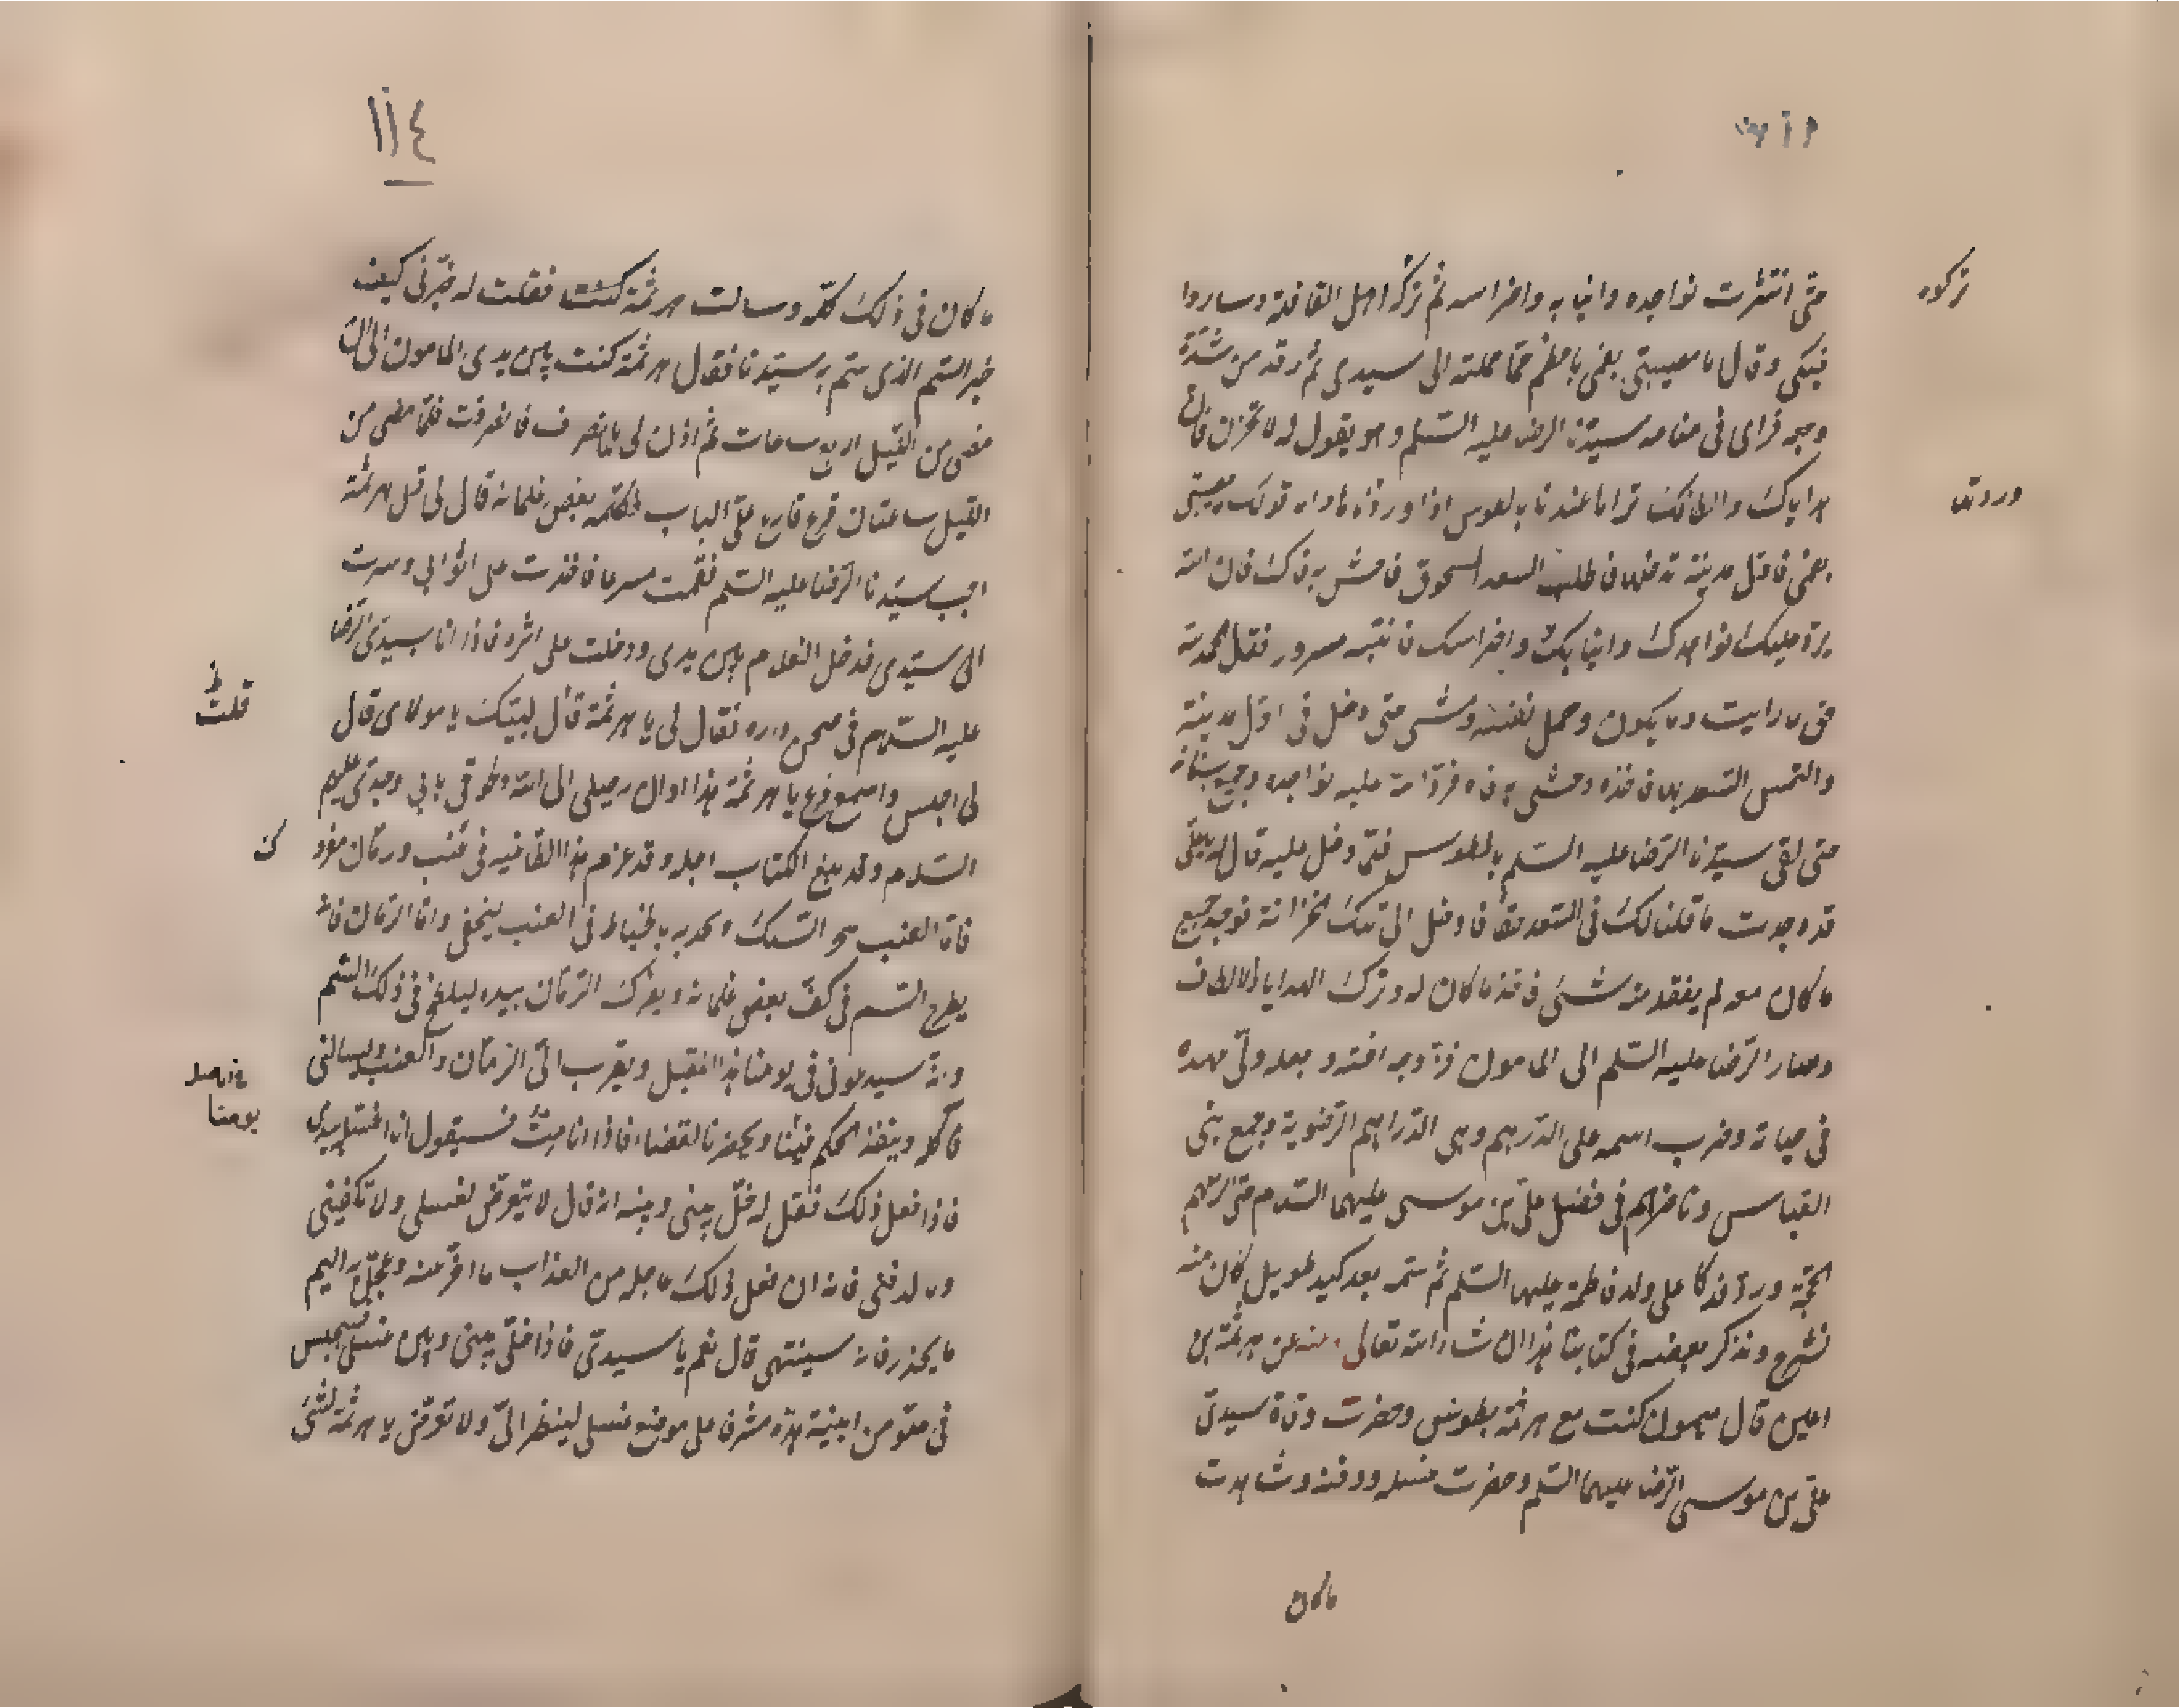 حتى انتثرت نواجده وانيابه واضراسه ثم تركه اهل القافلة وساروا
تركوه
فبكى وقال مصيبتي بفمي يا عظم مما حملته الى سيدي ثم رقد من شدة
وجعه فراى في منامه سيدنا الرضا عليه السلم وهو يقول له لا تحزن فان
هداياك والطافك تراها عندنا بالطوس اذا وردتها واما
وردتها
بفمي فاول مدينة تدخلها فاطلب السعد المسحوق فاحش به فاك فان الله
يرد عليك نواجدك وانيابك واضراسك فانتبه مسرور فقال الحمد لله
حق ما رايت وما يكون وحمل نفسه ومشى حتى دخل في اول مدينة
والتمس السعد بها فاخذه وحشى به فاه فرد الله عليه نواجده وجميع اسنانه
حتى لقى سيدنا الرضا عليه السلم بالطوس فلما دخل عليه قال له يا علي
قد وجدت ما قلنا لك في السعد حقا فادخل الى تلك الخزانة فوجد جميع
ما كان معه لم يفقد منه شئ فاخذ ما كان له وترك الهدايا والالطاف
وصار الرضا عليه السلم الى المامون فزوجه اخته وجعله ولي عهده
في حياته وضرب اسمه على الدرهم وهي الدراهم الرضوية وجمع بني
العباس وناظرهم في فضل علي بن موسى عليهما السلام حتى الزمهم
الحجة ورد فدكا على ولد فاطمة عليها السلم ثم سمه بعد كيد طويل كان منه
نشرح ونذكر بعضه في كتابنا هذا ان شاء الله تعالى وعنه عن هرثمة بن
اعين قال ميمون كنت مع هرثمة بطوس وحضرت وفاة سيدي
علي بن موسى الرضا عليهما السلم وحضرت غسله ودفنه وشاهدت
ما كان
١١٤
ما كان في ذلك كله وسالت هرثمة كنت فقلت له خبرني كيف
خبر السم الذي سم به سيدنا فقال هرثمة كنت بين يدي المامون الى ان
مضى من الليل اربع ساعات ثم اذن لي بالانصراف فانصرفت فلما مضى من
الليل ساعتان قرع قارع على الباب فكلمه بعض غلمانه قال لي قل لهرثمة
اجب سيدنا الرضا عليه السلم فقمت مسرعا فاخذت على اثوابي وسرت
الى سيدي فدخل الغلام بين يدي ودخلت على اثره فاذا انا بسيدي الرضا
عليه السلام في صحن داره فقال لي يا هرثمة قال لبيك يا مولاي قال
قلت ظ
لي اجلس واسمع وع يا هرثمة هذا اوان رحيلي الى الله ولحوقي بابي وجدي عليهم
السلام وقد بلغ الكتاب اجله وقد عزم هذا الطاغية في عنب ورمان مفرو
ك
فاما العنب السلك ويجذبه بالخياط في العنب ليخفى واما الرمان فانه
يطرح السم في كف بعض غلمانه ويفرك الرمان بيده ليلطخ في ذلك السم
وانه سيدعوني في يومنا هذا المقبل ويقرب الي الرمان والعنب ويسالني
يومنا
فاكله وينفذ الحكم فينا ويحضرنا القضاء فاذا انا مت فسيقول انا اغسله بيدي
فاذا فعل ذلك فقل له خل بيني وبينه انه قال لا تتعرض لغسلي ولا تكفيني
ولا لدفني فانه ان فعل ذلك عاجله من العذاب ما اخر عنه وعجل به اليم
ما يحذر فانه سينتهي قال نعم يا سيدي فاذا خلى بيني وبين غسلي فيجلس
في علو من ابنية هذه مشرفا على موضع غسلي لينظر الي ولا تعرض يا هرثمة لشئ